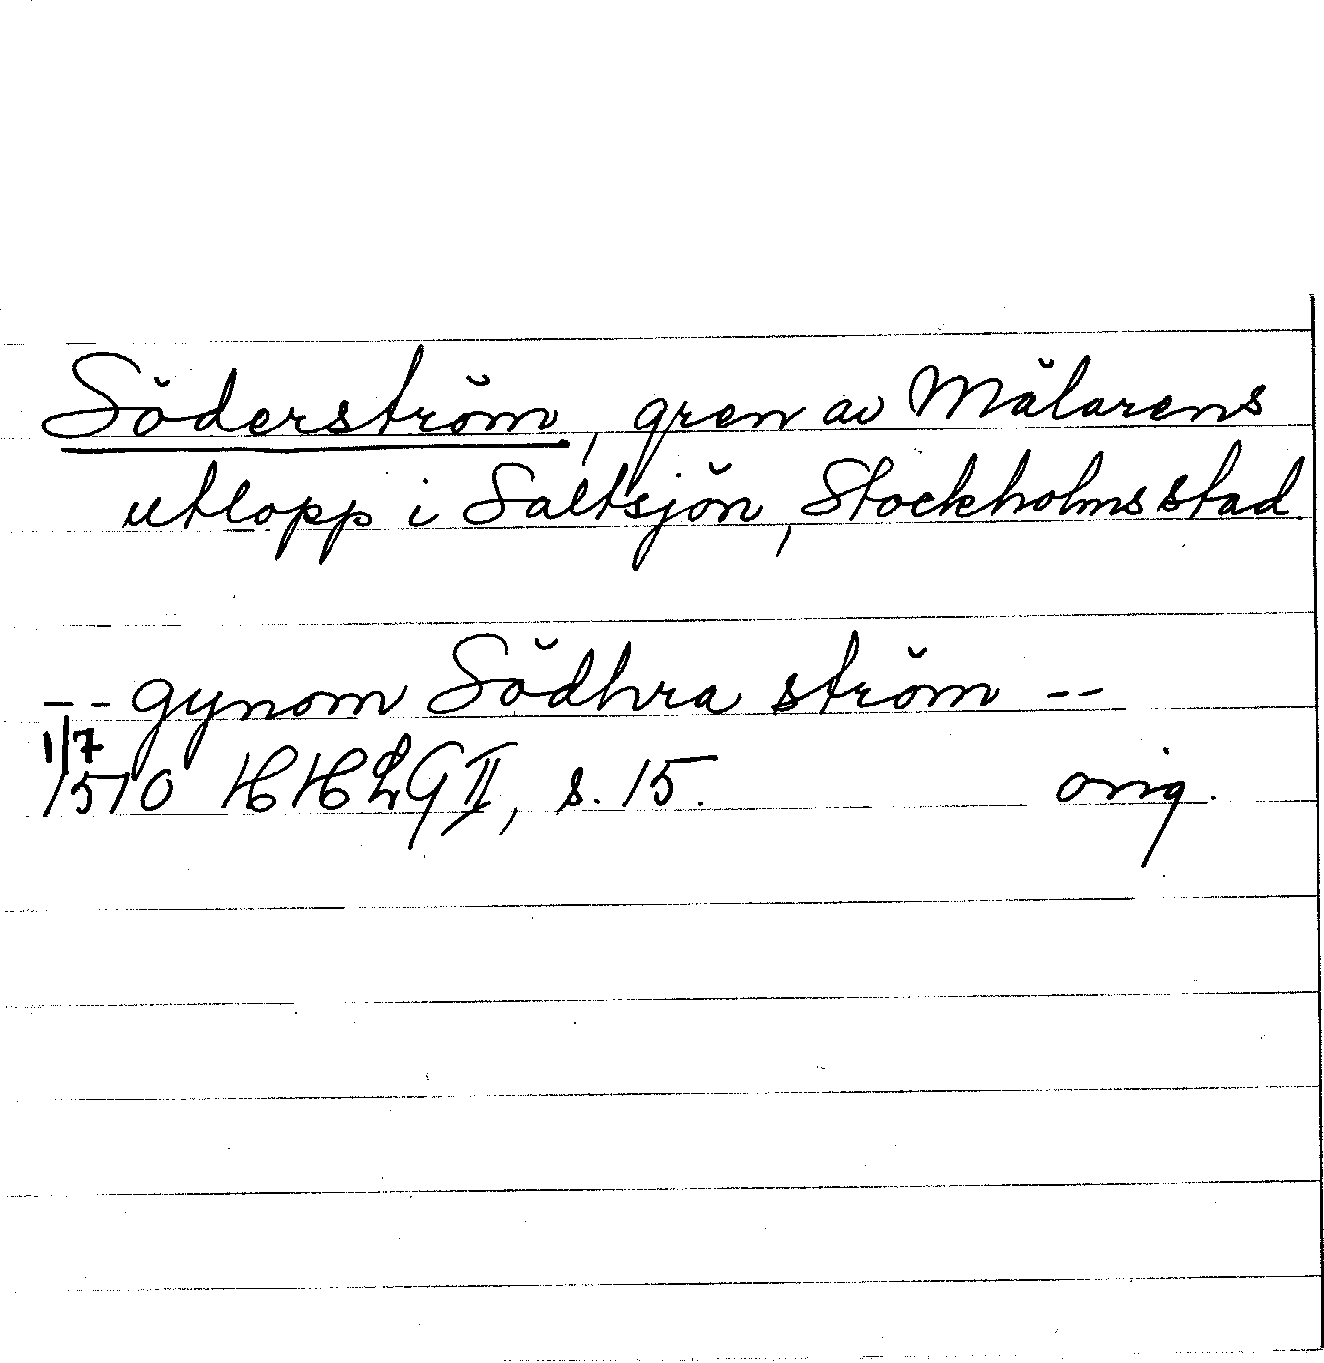 Söderström, gren av Mälarens
utlopp i Saltsjön, Stockholms stad.
-- gynom Södhra ström --
1/7
1510 HHLG II, s. 15. orig.